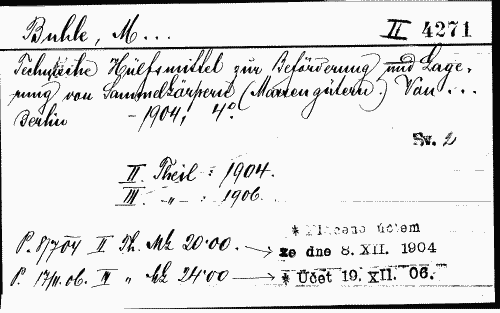 Buhle, M... II 4271
Technische Hülfsmittel zur Beförderung und Lage-
rung von Sammelkörpern (Massengütern.) Von...
Berlin - 1904, 4°.
Sv. 2
II. Theil: 1904.
III. „ : 1906.
P. 8/7 04 II Th. Mk 20·00. → * účtem
ze dne 8. XII. 1904
P. 06. III „ Mk 24·00 → * Účet 19. XII. 06.